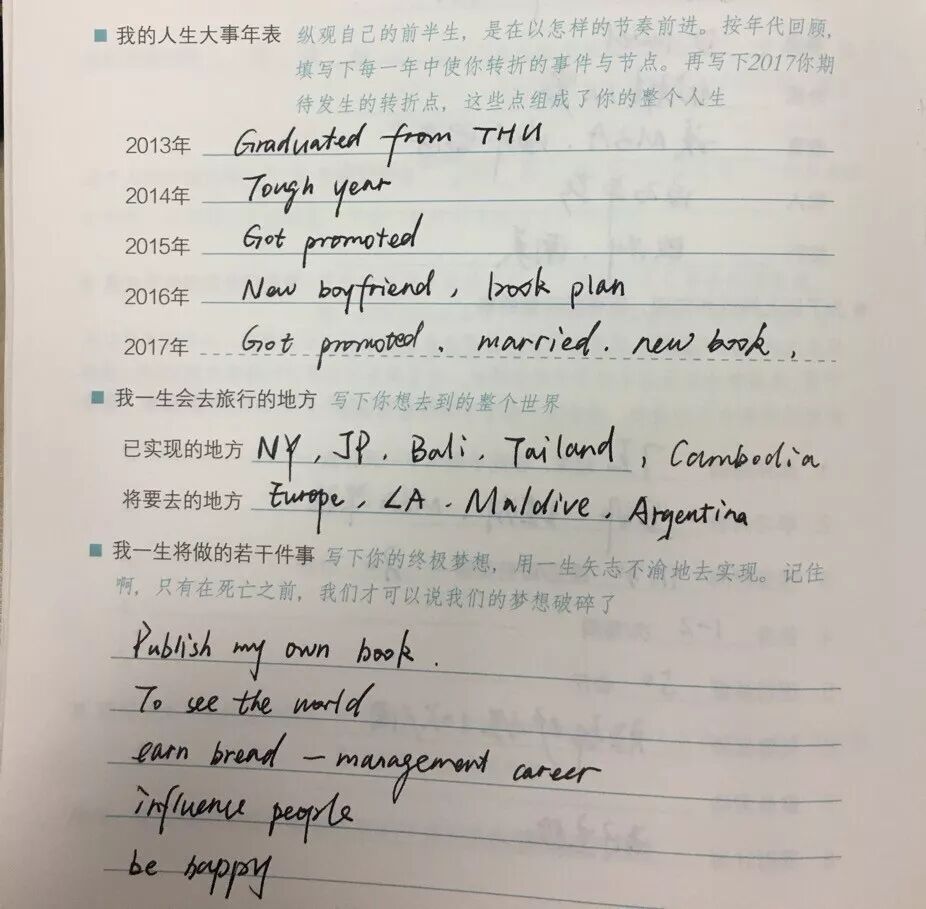 ■ 我的人生大事年表 纵观自己的前半生，是在以怎样的节奏前进。按年代回顾，
填写下每一年中使你转折的事件与节点。再写下2017你期
待发生的转折点，这些点组成了你的整个人生
2013年 Graduated from THU
2014年 Tough year
2015年 Got promoted
2016年 New boyfriend, book plan
2017年 Got promoted. married. new book,
■ 我一生会去旅行的地方 写下你想去到的整个世界
已实现的地方 NY, JP. Bali. Tailand, Cambodia
将要去的地方 Europe, LA. Maldive. Argentina
■ 我一生将做的若干件事 写下你的终极梦想，用一生矢志不渝地去实现。记住
啊，只有在死亡之前，我们才可以说我们的梦想破碎了
Publish my own book.
To see the world
earn bread — management career
influence people
be happy